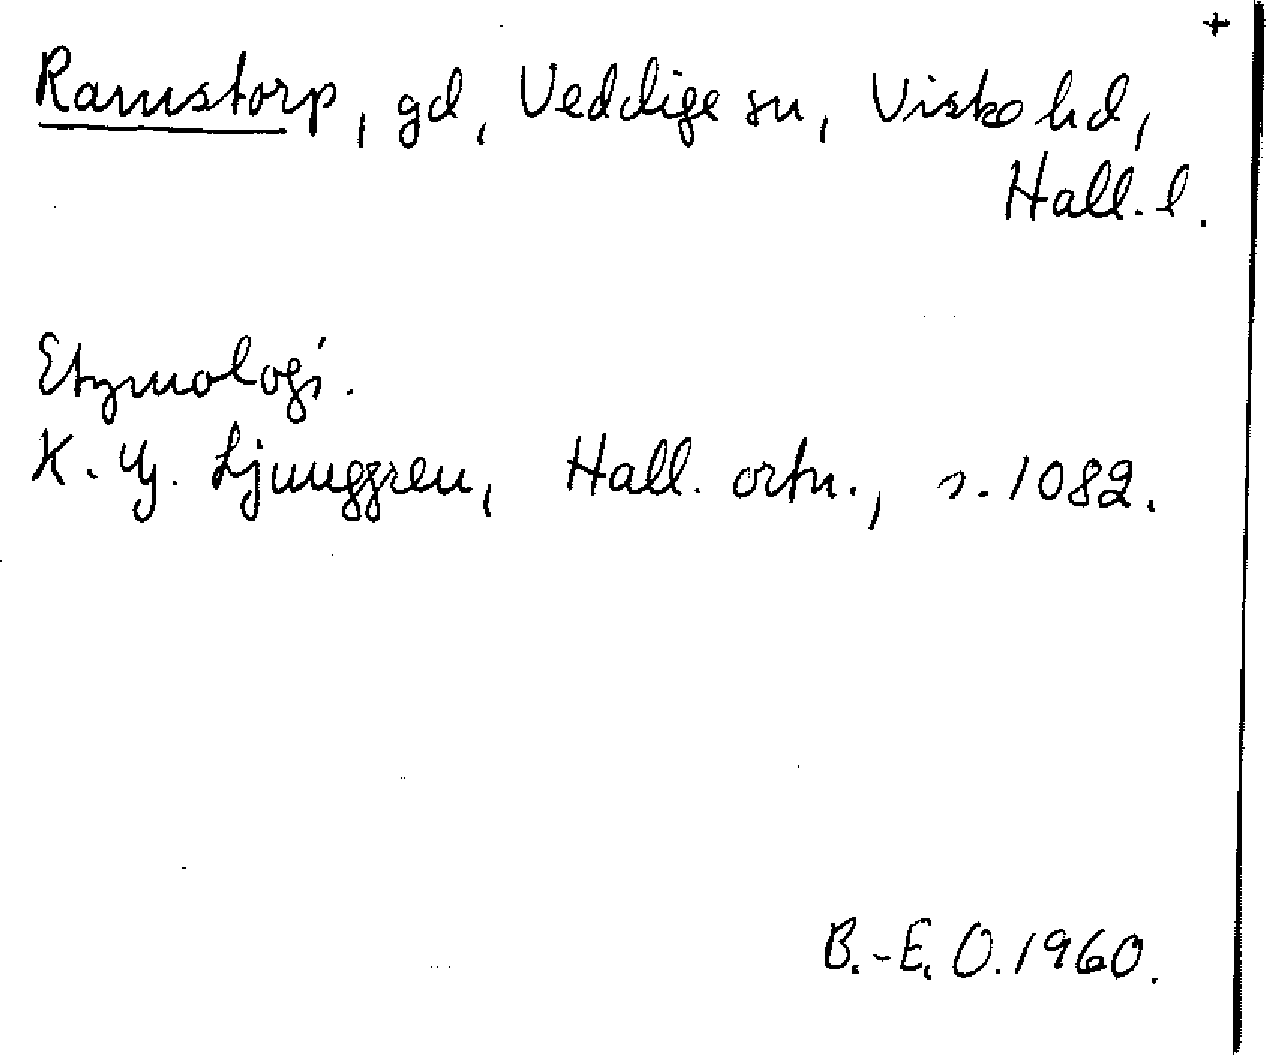 +
Ramstorp, gd, Veddige sn, Viske hd,
Hall. l.
Etymologi.
K. G. Ljunggren, Hall. ortn., s. 1082.
B.-E. O. 1960.